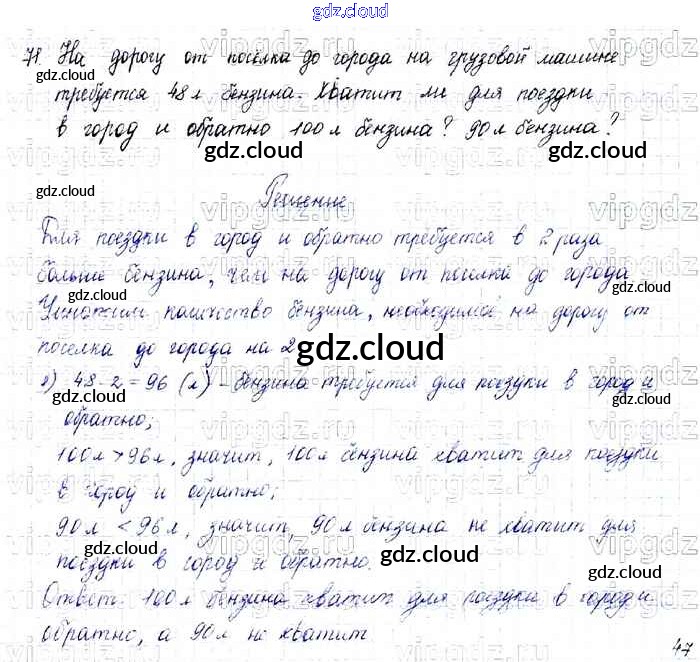 gdz.cloud
71. На дорогу от посёлка до города на грузовой машине
gdz.cloud
требуется 48 л бензина. Хватит ли для поездки
в город и обратно 100 л бензина? 90 л бензина?
gdz.cloud gdz.cloud
gdz.cloud
Решение
Для поездки в город и обратно требуется в 2 раза
больше бензина, чем на дорогу от посёлка до города
gdz.cloud gdz.cloud
Умножим количество бензина, необходимое на дорогу от
посёлка до города на 2
gdz.cloud
1) 48 · 2 = 96 (л) - бензина требуется для поездки в город и
обратно;
gdz.cloud gdz.cloud
100 л > 96 л, значит, 100 л бензина хватит для поездки
в город и обратно;
gdz.cloud
90 л < 96 л, значит, 90 л бензина не хватит для
поездки в город и обратно.
gdz.cloud gdz.cloud
Ответ: 100 л бензина хватит для поездки в город и
gdz.cloud
обратно, а 90 л не хватит
47